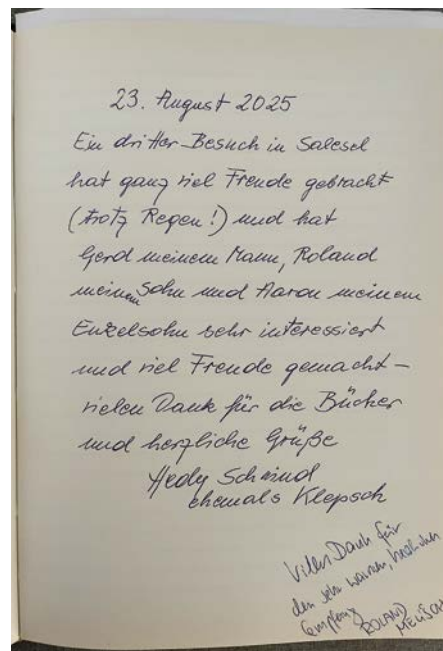 23. August 2025
Ein dritter Besuch in Salesel
hat ganz viel Freude gebracht
(trotz Regen!) und hat
Gerd meinem Mann, Roland
meinem Sohn und Aaron meinem
Enkelsohn sehr interessiert
und viel Freude gemacht –
vielen Dank für die Bücher
und herzliche Grüße
Hedy Schmid
ehemals Klepsch
Vielen Dank für
den sehr warmen,
Empfang
ROLAND